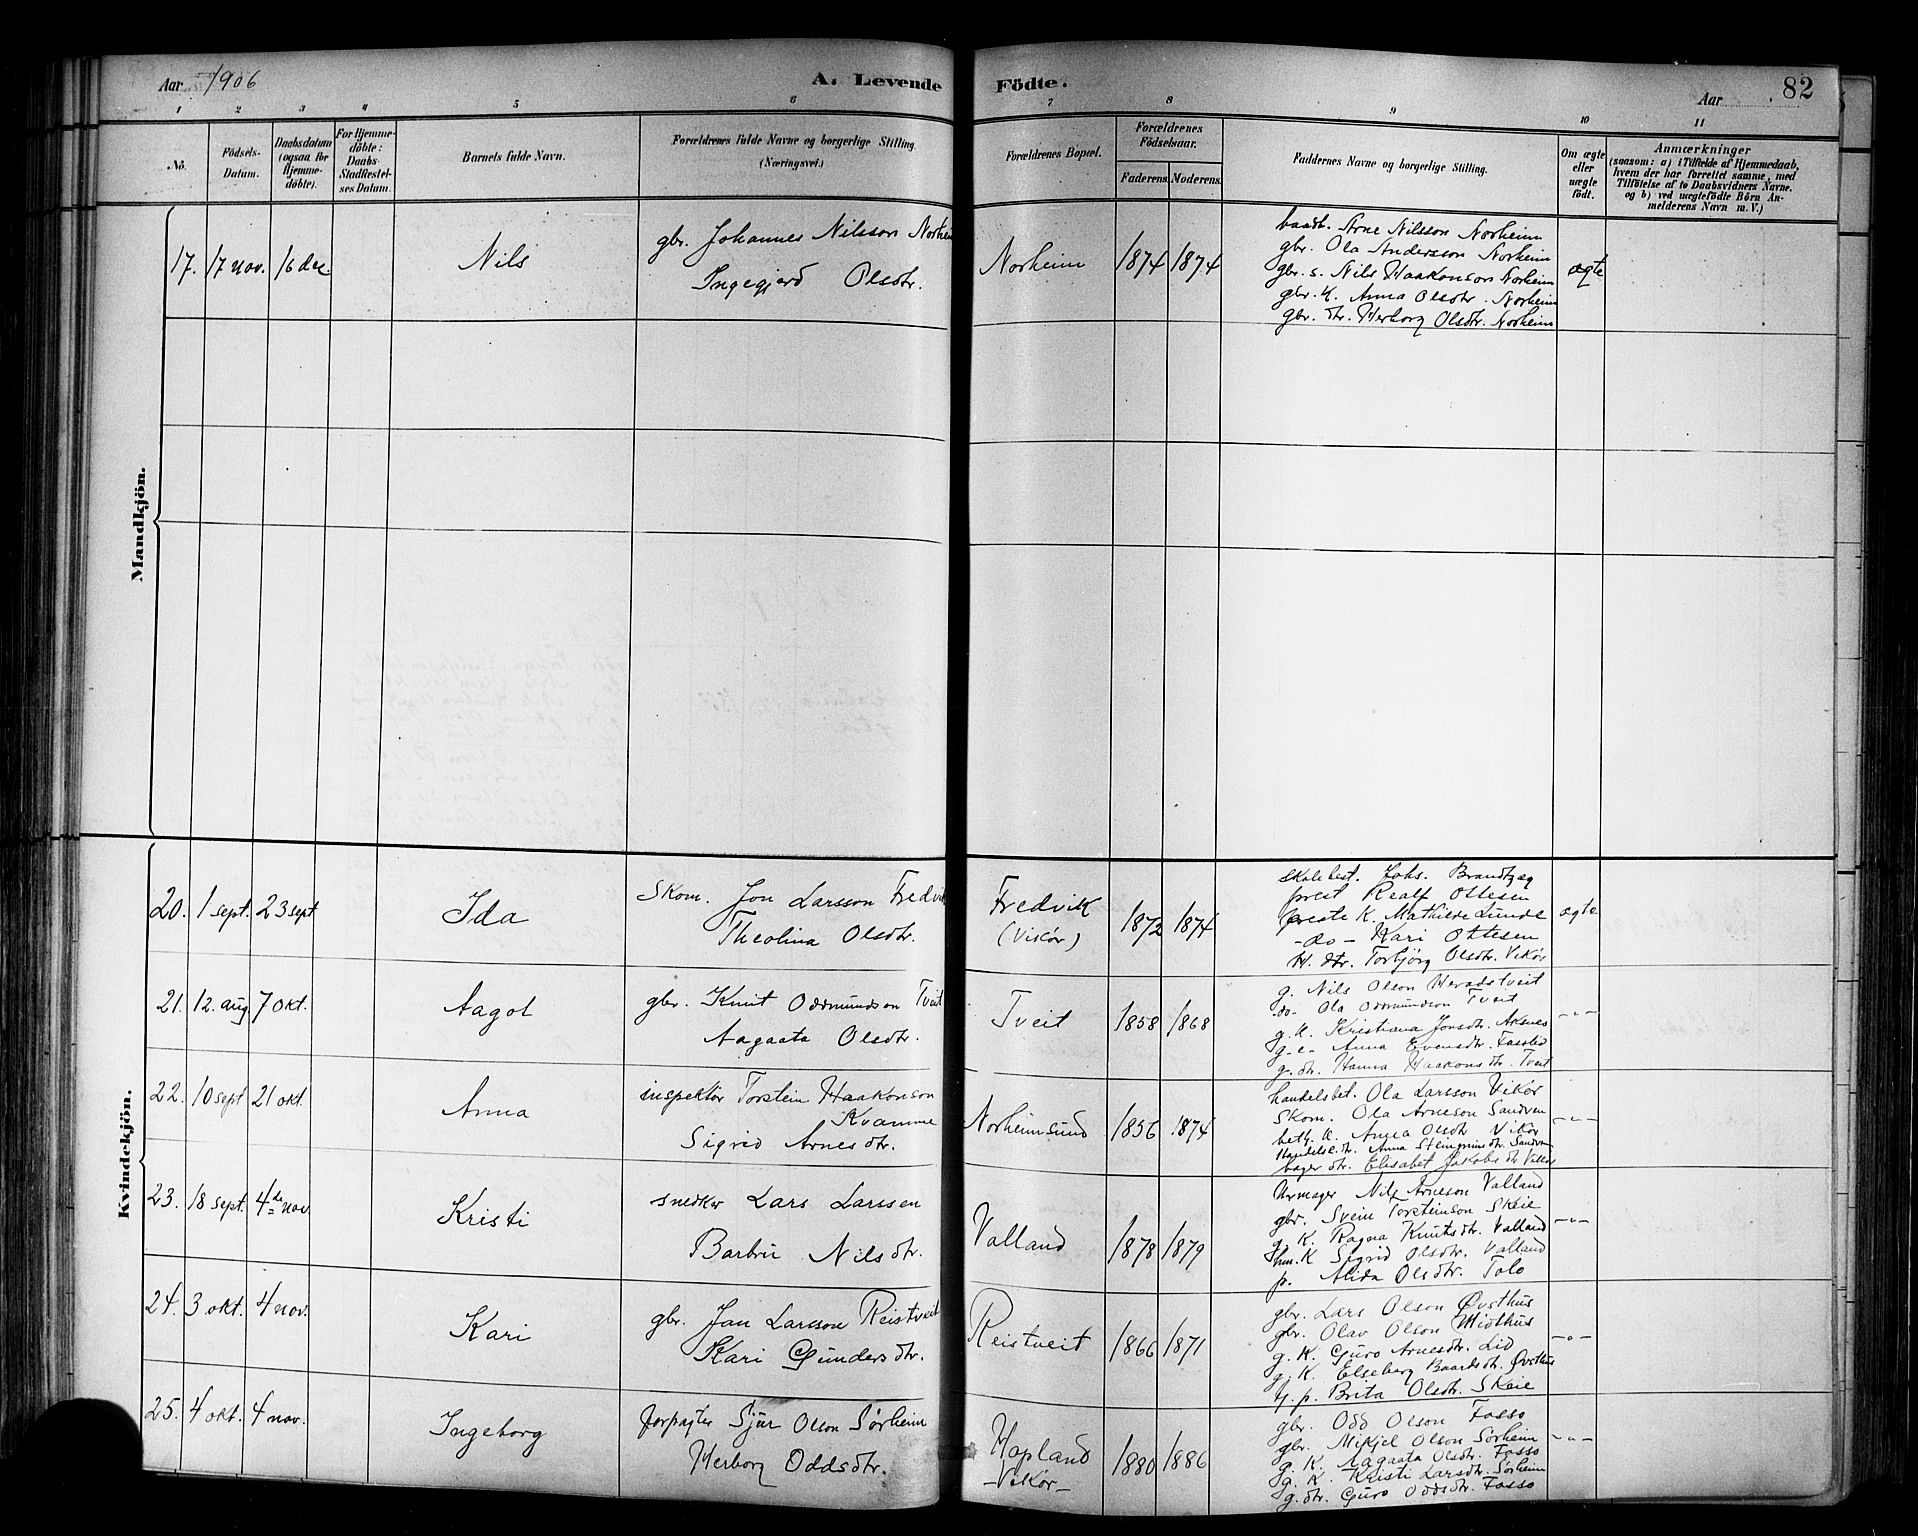 Aar 1906
A. Levende Födte.
Aar 82
1 2 3 4 5 6 7 8 9 10 11
No.
Födsels-Datum.
Daabsdatum (ogsaa for Hjemme-döbte).
For Hjemme-döbte: Daabs-Stadfæstel-ses Datum.
Barnets fulde Navn.
Forældrenes fulde Navne og borgerlige Stilling. (Næringsvei.)
Forældrenes Bopæl.
Forældrenes Födselsaar.
Faderens. Moderens.
Faddernes Navne og borgerlige Stilling.
Om ægte eller uægte födt.
Anmærkninger
(saasom: a) i Tilfælde af Hjemmedaab,
hvem der har forrettet samme, med
Tilföielse af to Daabsvidners Navne.
og b) ved uægtefödte Börn An-
melderens Navn m. V.)
Mandkjön.
17. 17 nov. 16 dec. Nils
gbr. Johannes Nilsson Norheim
Ingegjerd Olsdtr.
Norheim 1874 1874
baadb. Arne Nilsson Norheim
gbr. Ola Andersson Norheim
gbr. s. Nils Haakonson Norheim
gbr. K. Anna Olsdtr. Norheim
gbr. dtr. Herborg Olsdtr. Norheim
ægte
Kvindekjön.
20. 1 sept. 23 sept Ida
Skom. Jon Larsson Fredvik
Theolina Olsdtr.
Fredvik
(Vikör)
1872 1874
skolebest. Johs. Brandtzæg
prest Realf Ottesen
preste K. Mathilde Lunde
-do- Kari Ottesen
H. dtr. Torbjörg Olsdtr. Vikör
ægte
21. 12. aug 7 okt. Aagot
gbr. Knut Oddmundson Tveit
Aagaata Olsdtr.
Tveit 1858 1868
g. Nils Olson Heradstveit
-do- Ola Oddmundson Tveit
g. K. Kristiana Jonsdtr. Aksnes
g. e- Anna Evensdtr. Fosslid
g. dtr. Hanna Haakonsdtr. Tveit
-"-
22. 10 sept 21 okt. Anna
inspektör Torstein Haakonson
Kvamme
Sigrid Arnesdtr.
Norheimsund 1856 1874
handelsbet. Ola Larsson Vikör
Skom. Ola Arneson Sandven
betj. K. Anna Olsdtr Vikör
Handelsb. dtr. Anna Steingrimsdtr. Sandven
bager dtr. Elisabet Jakobsdtr Vikör
-"-
23. 18 sept. 4de nov Kristi
snedker Lars Larssen
Barbru Nilsdtr.
Valland 1878 1879
Urmager Nils Arneson Valland
gbr. Svein Torsteinson Skeie
g. K. Ragna Knutsdtr. Valland
K Sigrid Olsdtr. Valland
p. Alida Olsdtr. Tolo
-"-
24. 3 okt. 4 nov. Kari
gbr. Jan Larsson Reistveit
Kari Gundersdtr.
Reistveit 1866 1871
gbr. Lars Olson Øvsthus
gbr. Olav Olson Midthus
g. K. Guro Arnesdtr. Lid
g. K. Elseborg Baardsdtr. Øvsthus
tj. p. Brita Olsdtr. Skeie
-"-
25. 4 okt. 4 nov. Ingeborg
forpagter Sjur Olson Sörheim
Herborg Oddsdtr.
Hopland
-Vikör-
1880 1886
gbr. Odd Olson Fosso
gbr. Mikjel Olson Sörheim
g. K. Aagaata Olsdtr. Fosso
g. K. Kristi Larsdtr. Sörheim
g. dtr. Guro Oddsdtr. Fosso
-"-